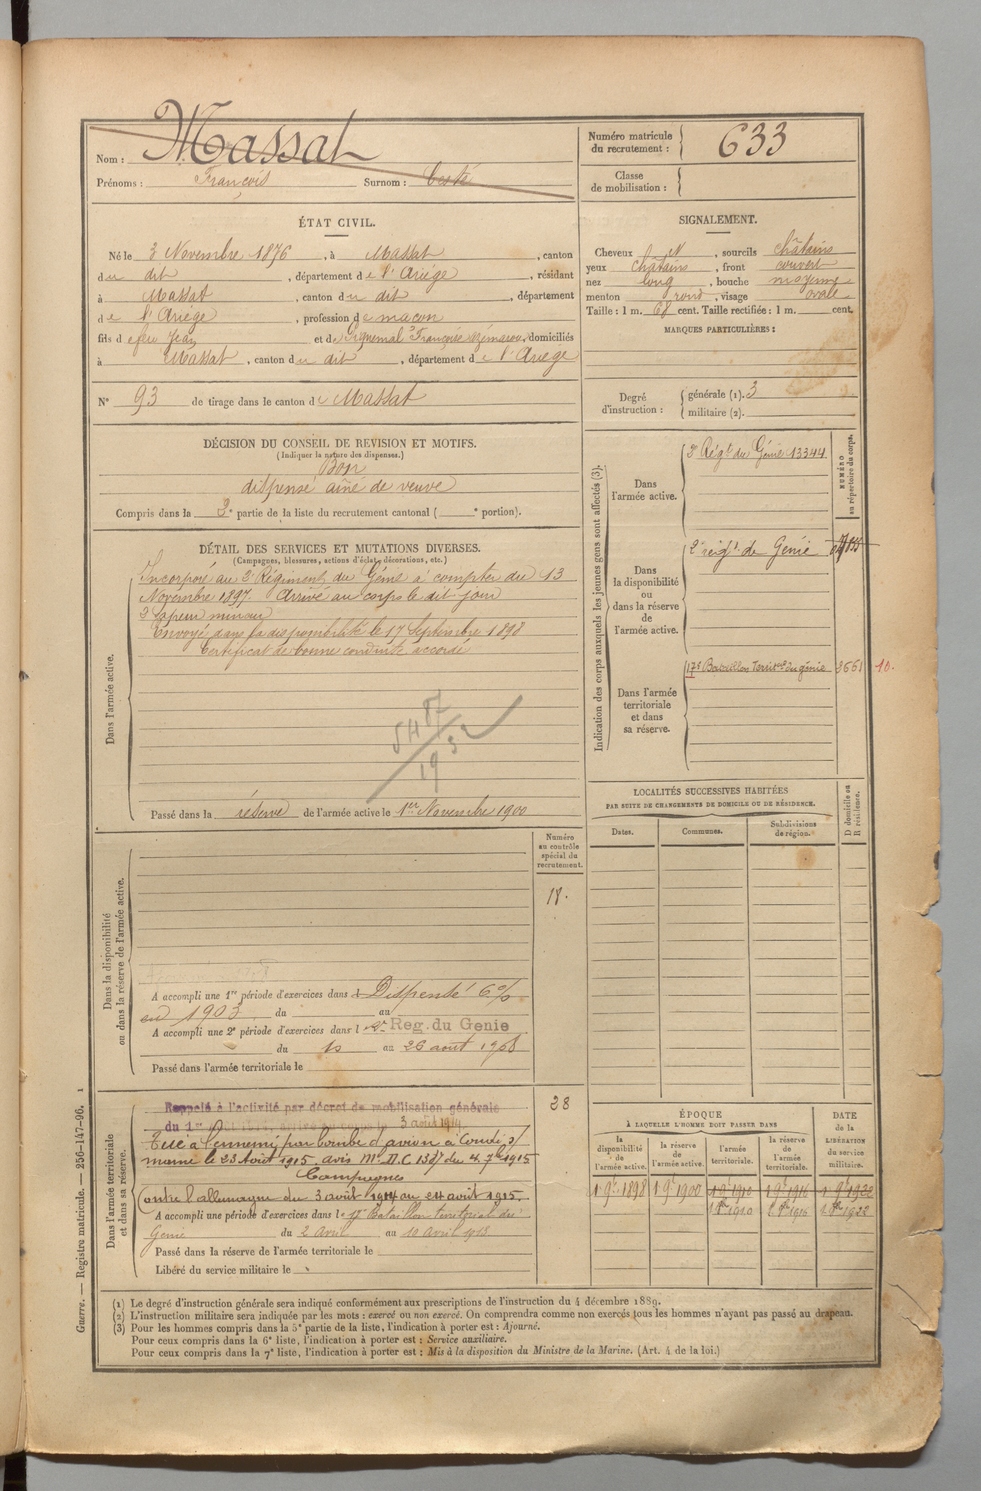 Nom : Massat
Prénoms : François Surnom : Testé
Numéro matricule du recrutement : 633
Classe de mobilisation :
ÉTAT CIVIL.
Né le 3 Novembre 1876, à Massat, canton
du dit, département de l'Ariège, résidant
à Massat, canton du dit, département
de l'Ariège, profession de maçon
fils de feu Jean et de Piquemal Françoise, domiciliés
à Massat, canton du dit, département de l'Ariège
N° 93 de tirage dans le canton de Massat
SIGNALEMENT.
Cheveux N, sourcils châtains
yeux châtains, front couvert
nez long, bouche moyenne
menton rond, visage ovale
Taille : 1 m. 68 cent. Taille rectifiée : 1 m. cent.
MARQUES PARTICULIÈRES :
Degré d'instruction :
générale (1). 3
militaire (2).
DÉCISION DU CONSEIL DE REVISION ET MOTIFS.
(Indiquer la nature des dispenses.)
Bon
dispensé aîné de veuve
Compris dans la 3e partie de la liste du recrutement cantonal ( e portion).
Indication des corps auxquels les jeunes gens sont affectés (3).
NUMÉRO au répertoire du corps.
Dans l'armée active.
2e Régt du Génie 13344
Dans la disponibilité ou dans la réserve de l'armée active.
2e régt de Génie
Dans l'armée territoriale et dans sa réserve.
17e Bataillon Territal du génie 3661 10.
DÉTAIL DES SERVICES ET MUTATIONS DIVERSES.
(Campagnes, blessures, actions d'éclat, décorations, etc.)
Dans l'armée active.
Incorporé au 2e Régiment du Génie à compter du 13
Novembre 1897. Arrivé au corps le dit jour
2e Sapeur mineur
Envoyé dans la disponibilité le 17 Septembre 1898
Certificat de bonne conduite accordé
5H 87
1932
Passé dans la réserve de l'armée active le 1er Novembre 1900
LOCALITÉS SUCCESSIVES HABITÉES
PAR SUITE DE CHANGEMENTS DE DOMICILE OU DE RÉSIDENCE.
Dates. Communes. Subdivisions de région. D domicile ou R résidence.
Numéro au contrôle spécial du recrutement.
18.
Dans la disponibilité ou dans la réserve de l'armée active.
A accompli une 1re période d'exercices dans l Dispensé 6%
en 1903 du au
A accompli une 2e période d'exercices dans l 2e Reg. du Genie
du 10 au 26 août 1908
Passé dans l'armée territoriale le
28
Dans l'armée territoriale et dans sa réserve.
Rappelé à l'activité par décret de mobilisation générale
du 1er 3 août 1914
Tué à l'ennemi par bombe d'avion à Condé s/
marne le 23 Août 1915. avis Mel M.C 1387 du 4 7bre 1915
Campagnes
Contre l'allemagne du 3 août 1914 au 24 août 1915.
A accompli une période d'exercices dans le 17e Bataillon territorial du
Génie du 2 avril au 10 avril 1913
Passé dans la réserve de l'armée territoriale le
Libéré du service militaire le
ÉPOQUE
À LAQUELLE L'HOMME DOIT PASSER DANS
la disponibilité de l'armée active. la réserve de l'armée active. l'armée territoriale. la réserve de l'armée territoriale.
DATE de la LIBÉRATION du service militaire.
1 9e 1898 1 9e 1900 1 9e 1910 1 9e 1916 1 9e 1922
1 8bre 1910 1 8bre 1916 1 8bre 1922
(1) Le degré d'instruction générale sera indiqué conformément aux prescriptions de l'instruction du 4 décembre 1889.
(2) L'instruction militaire sera indiquée par les mots : exercé ou non exercé. On comprendra comme non exercés tous les hommes n'ayant pas passé au drapeau.
(3) Pour les hommes compris dans la 5e partie de la liste, l'indication à porter est : Ajourné.
Pour ceux compris dans la 6e liste, l'indication à porter est : Service auxiliaire.
Pour ceux compris dans la 7e liste, l'indication à porter est : Mis à la disposition du Ministre de la Marine. (Art. 4 de la loi.)
Guerre. — Registre matricule. — 256-147-96. 1